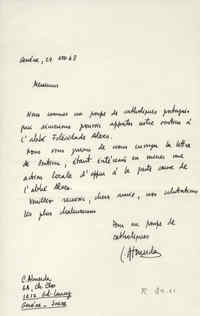 Genève, 24 nov 68
Messieurs
Nous sommes un groupe de catholiques portugais
qui aimerions pouvoir apporter notre soutien à
l'abbé Felicidade Alves.
Nous vous prions de nous envoyer la lettre
de soutien, étant intéressés en mener une
action locale d'appui à la juste cause de
l'abbé Alves.
Veuillez recevoir, chers amis, nos salutations
les plus chaleureuses
Pour un groupe de
catholiques
C. Almeida
C. Almeida
Ch.
1212 Gd-Lancy
Genève - Suisse